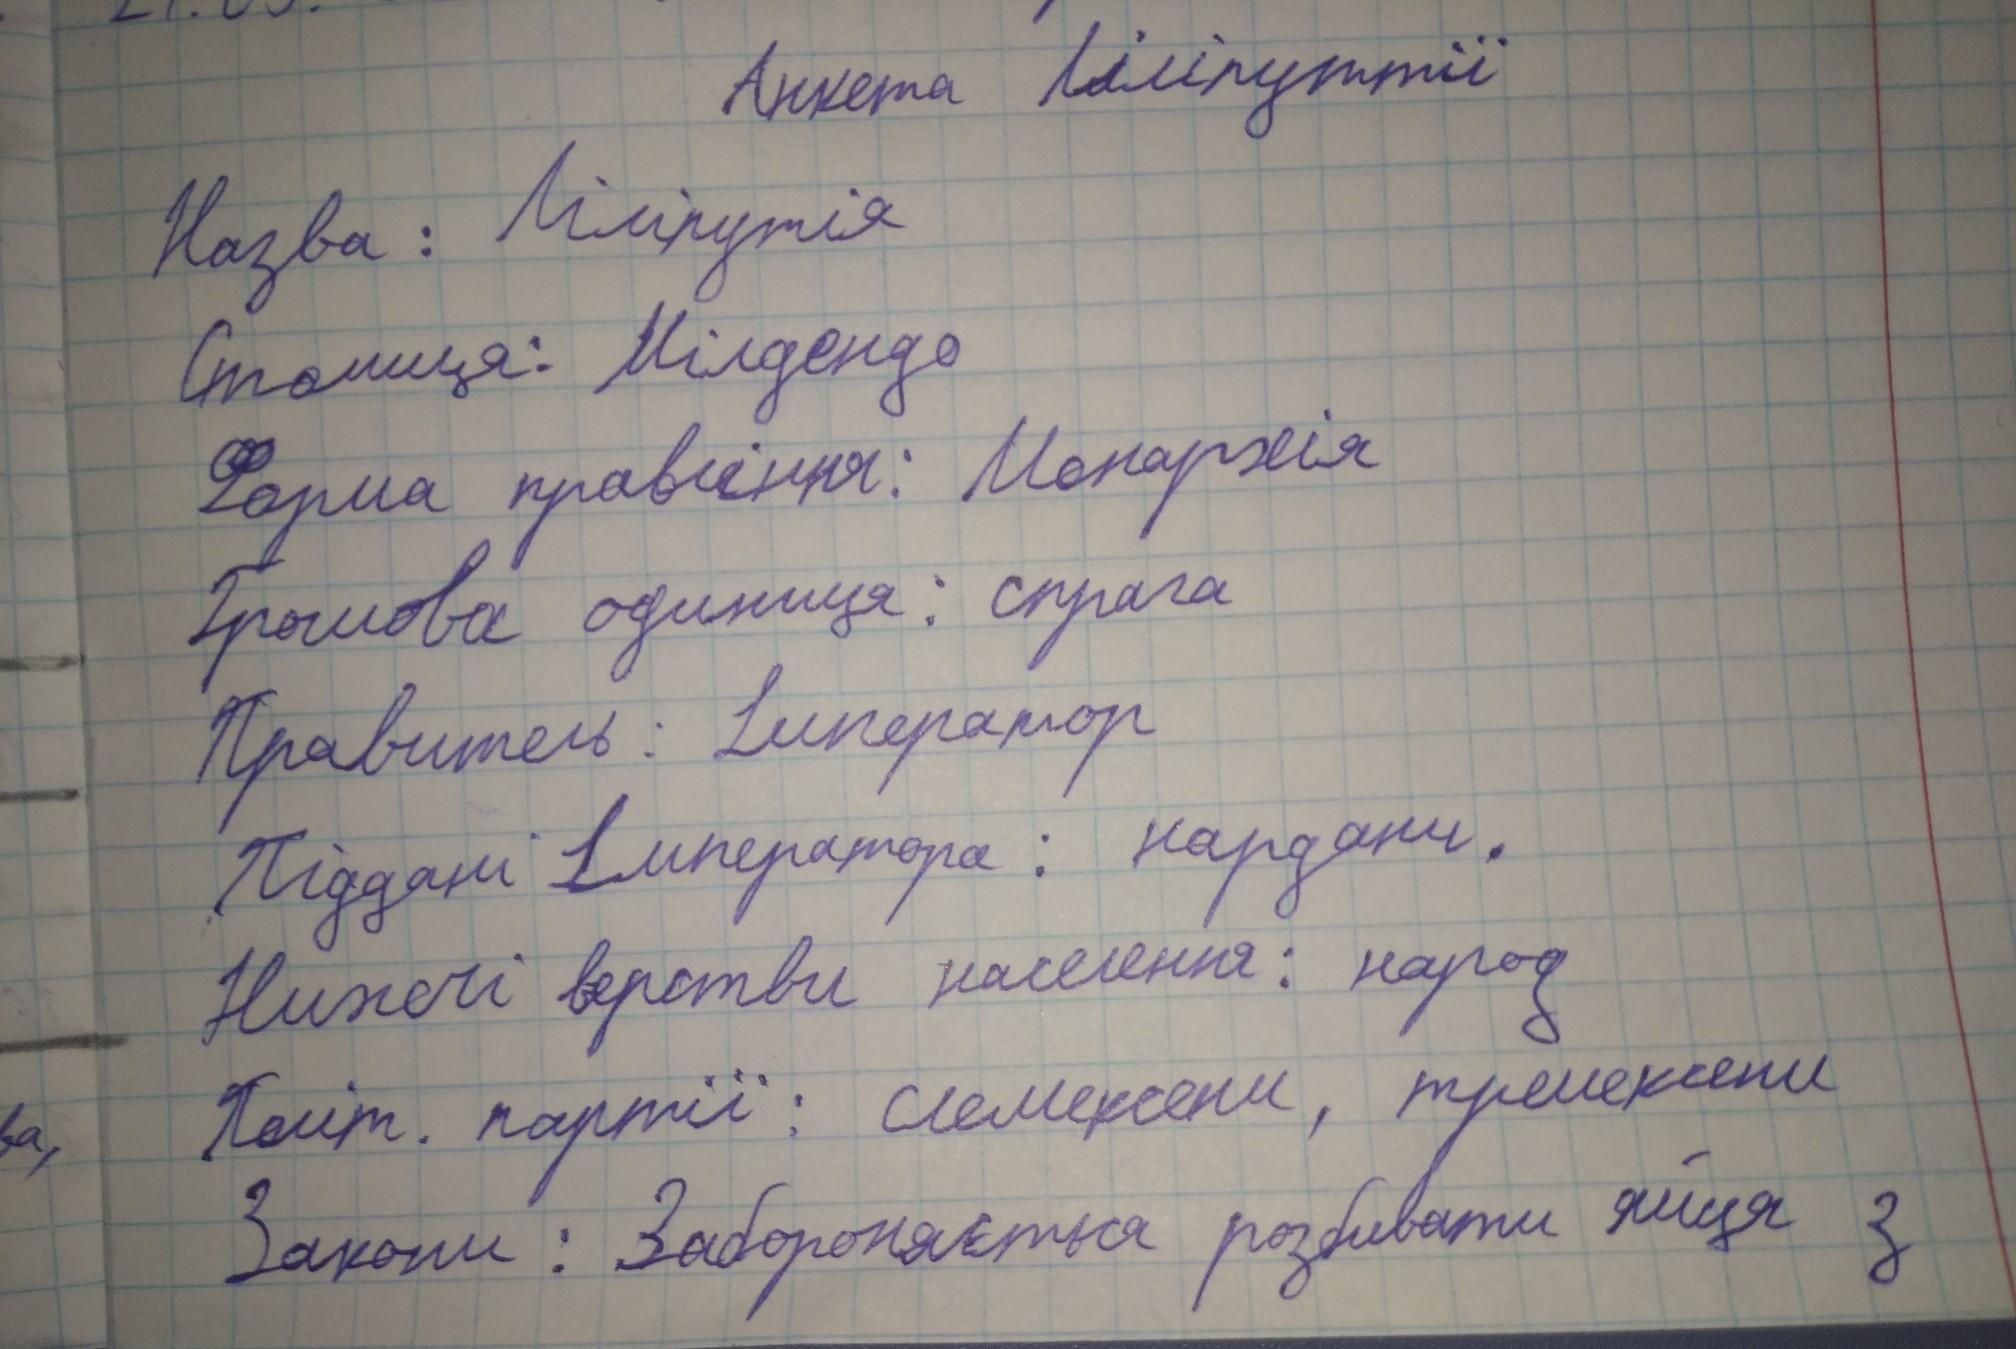 Анкета Ліліпуттії
Назва: Ліліпутія
Столиця: Мілдендо
Форма правління: Монархія
Грошова одиниця: спрага
Правитель: Імператор
Піддані Імператора: нардани.
Нижчі верстви населення: народ
Політ. партії: слемексени, тремексени
ва,
Закони: Забороняється розбивати яйця з